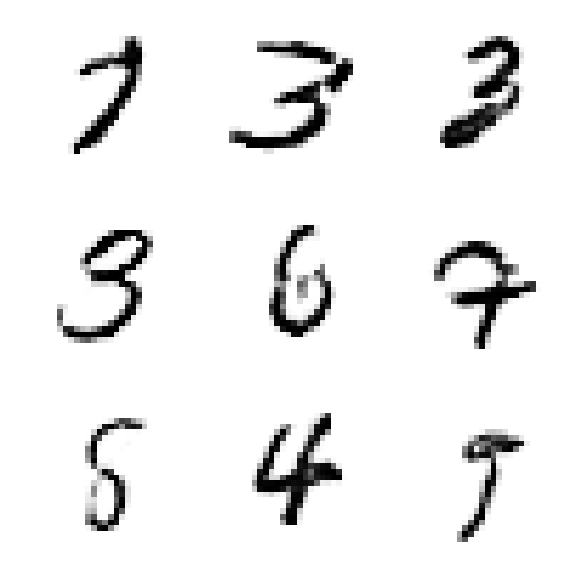 7 3 3
3 6 7
8 4 9